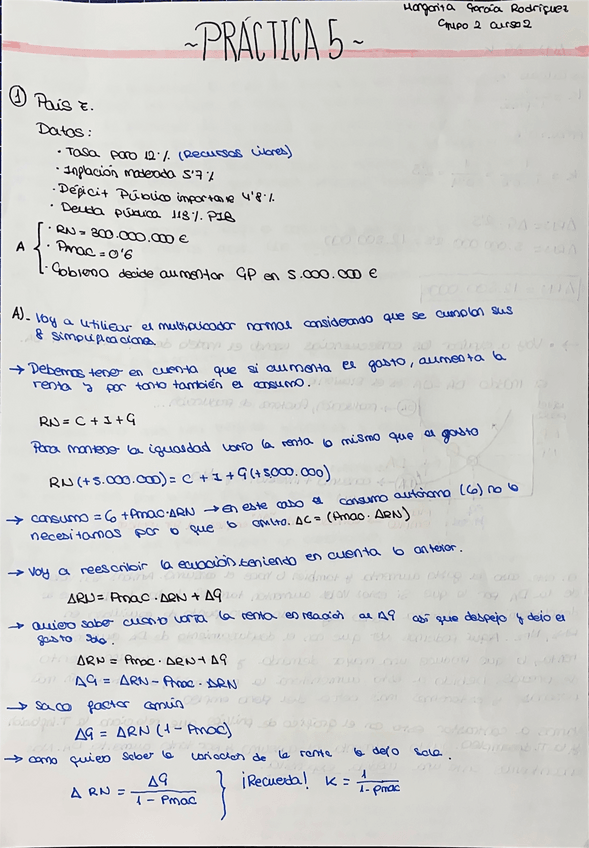 Margarita García Rodríguez
Grupo 2 curso 2
~PRÁCTICA 5~
① País z.
Datos:
· Tasa paro 12% (Recursos libres)
· Inflación moderada 5'7%
· Déficit Público importante 4'8%
· Deuda pública 118% PIB
A { · RN = 300.000.000 €
· Pmac = 0'6
· Gobierno decide aumentar GP en 5.000.000 €
A)- Voy a utilizar el multiplicador normal considerando que se cumplan sus
8 simplificaciones
→ Debemos tener en cuenta que si aumenta el gasto, aumenta la
renta y por tanto también el consumo.
RN = C + I + G
Para mantener la igualdad varío la renta lo mismo que el gasto
RN (+5.000.000) = C + I + G (+5.000.000)
→ consumo = C0 + Pmac·ΔRN → en este caso el consumo autónomo (C0) no lo
necesitamos por lo que lo omito. ΔC = (Pmac · ΔRN)
→ Voy a reescribir la ecuación teniendo en cuenta lo anterior.
ΔRN = Pmac · ΔRN + ΔG
→ quiero saber cuanto varía la renta en relación al ΔG así que despejo y dejo el
gasto solo.
ΔRN = Pmac · ΔRN + ΔG
ΔG = ΔRN - Pmac · ΔRN
→ Saco factor común
ΔG = ΔRN (1 - Pmac)
→ como quiero saber la variación de la renta la dejo sola.
ΔRN = ΔG / 1 - Pmac } ¡Recuerda! K = 1 / 1 - Pmac